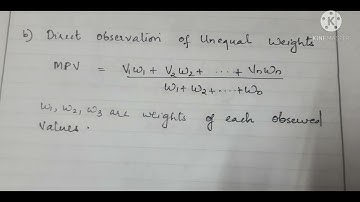 KINEMASTER
b) Direct observation of Unequal Weights
MPV = V1w1 + V2w2 + ..... + Vnwn
w1 + w2 + ..... + wn
w1, w2, w3 are weights of each observed
values.